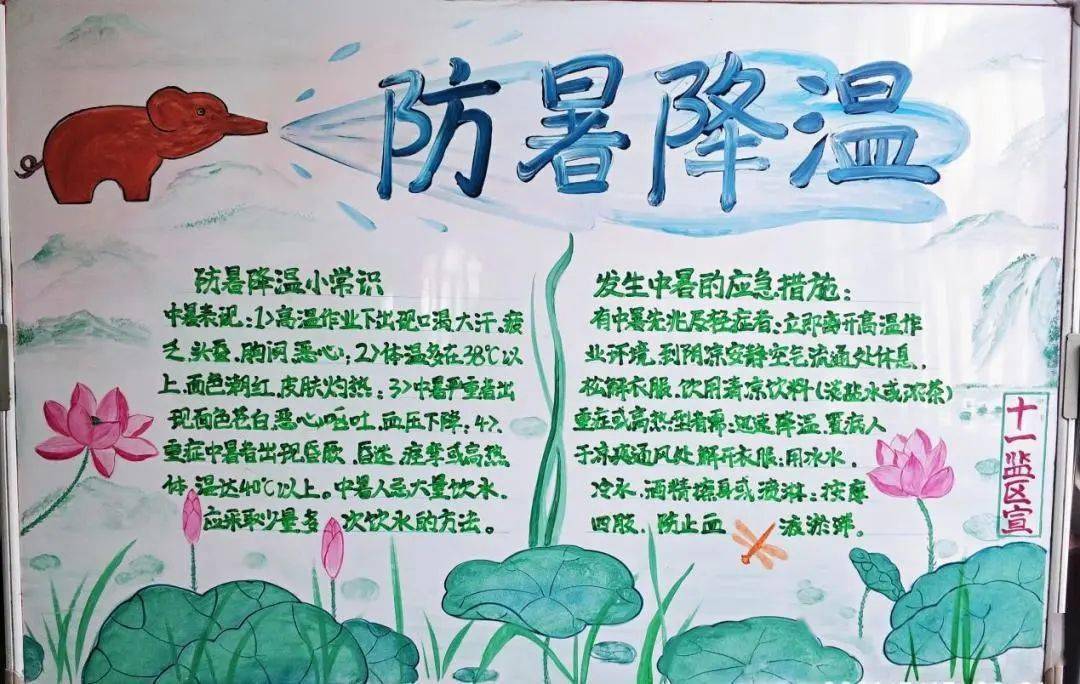 防暑降温
防暑降温小常识
中暑表现：1>高温作业下出现口渴大汗、疲
乏、头晕、胸闷、恶心；2>体温多在38℃以
上、面色潮红、皮肤灼热；3>中暑严重者出
现面色苍白、恶心呕吐、血压下降；4>
重症中暑者出现昏厥、昏迷、痉挛或高热
体温达40℃以上。中暑人忌大量饮水、
应采取少量多次饮水的方法。
发生中暑的应急措施：
有中暑先兆及轻症者：立即离开高温作
业环境，到阴凉安静空气流通处休息，
松解衣服、饮用清凉饮料(淡盐水或浓茶)
重症或高热型者需：迅速降温，置病人
于凉爽通风处解开衣服；用冰水、
冷水、酒精擦身或淋；按摩
四肢、防止血液淤滞。
十一监区宣